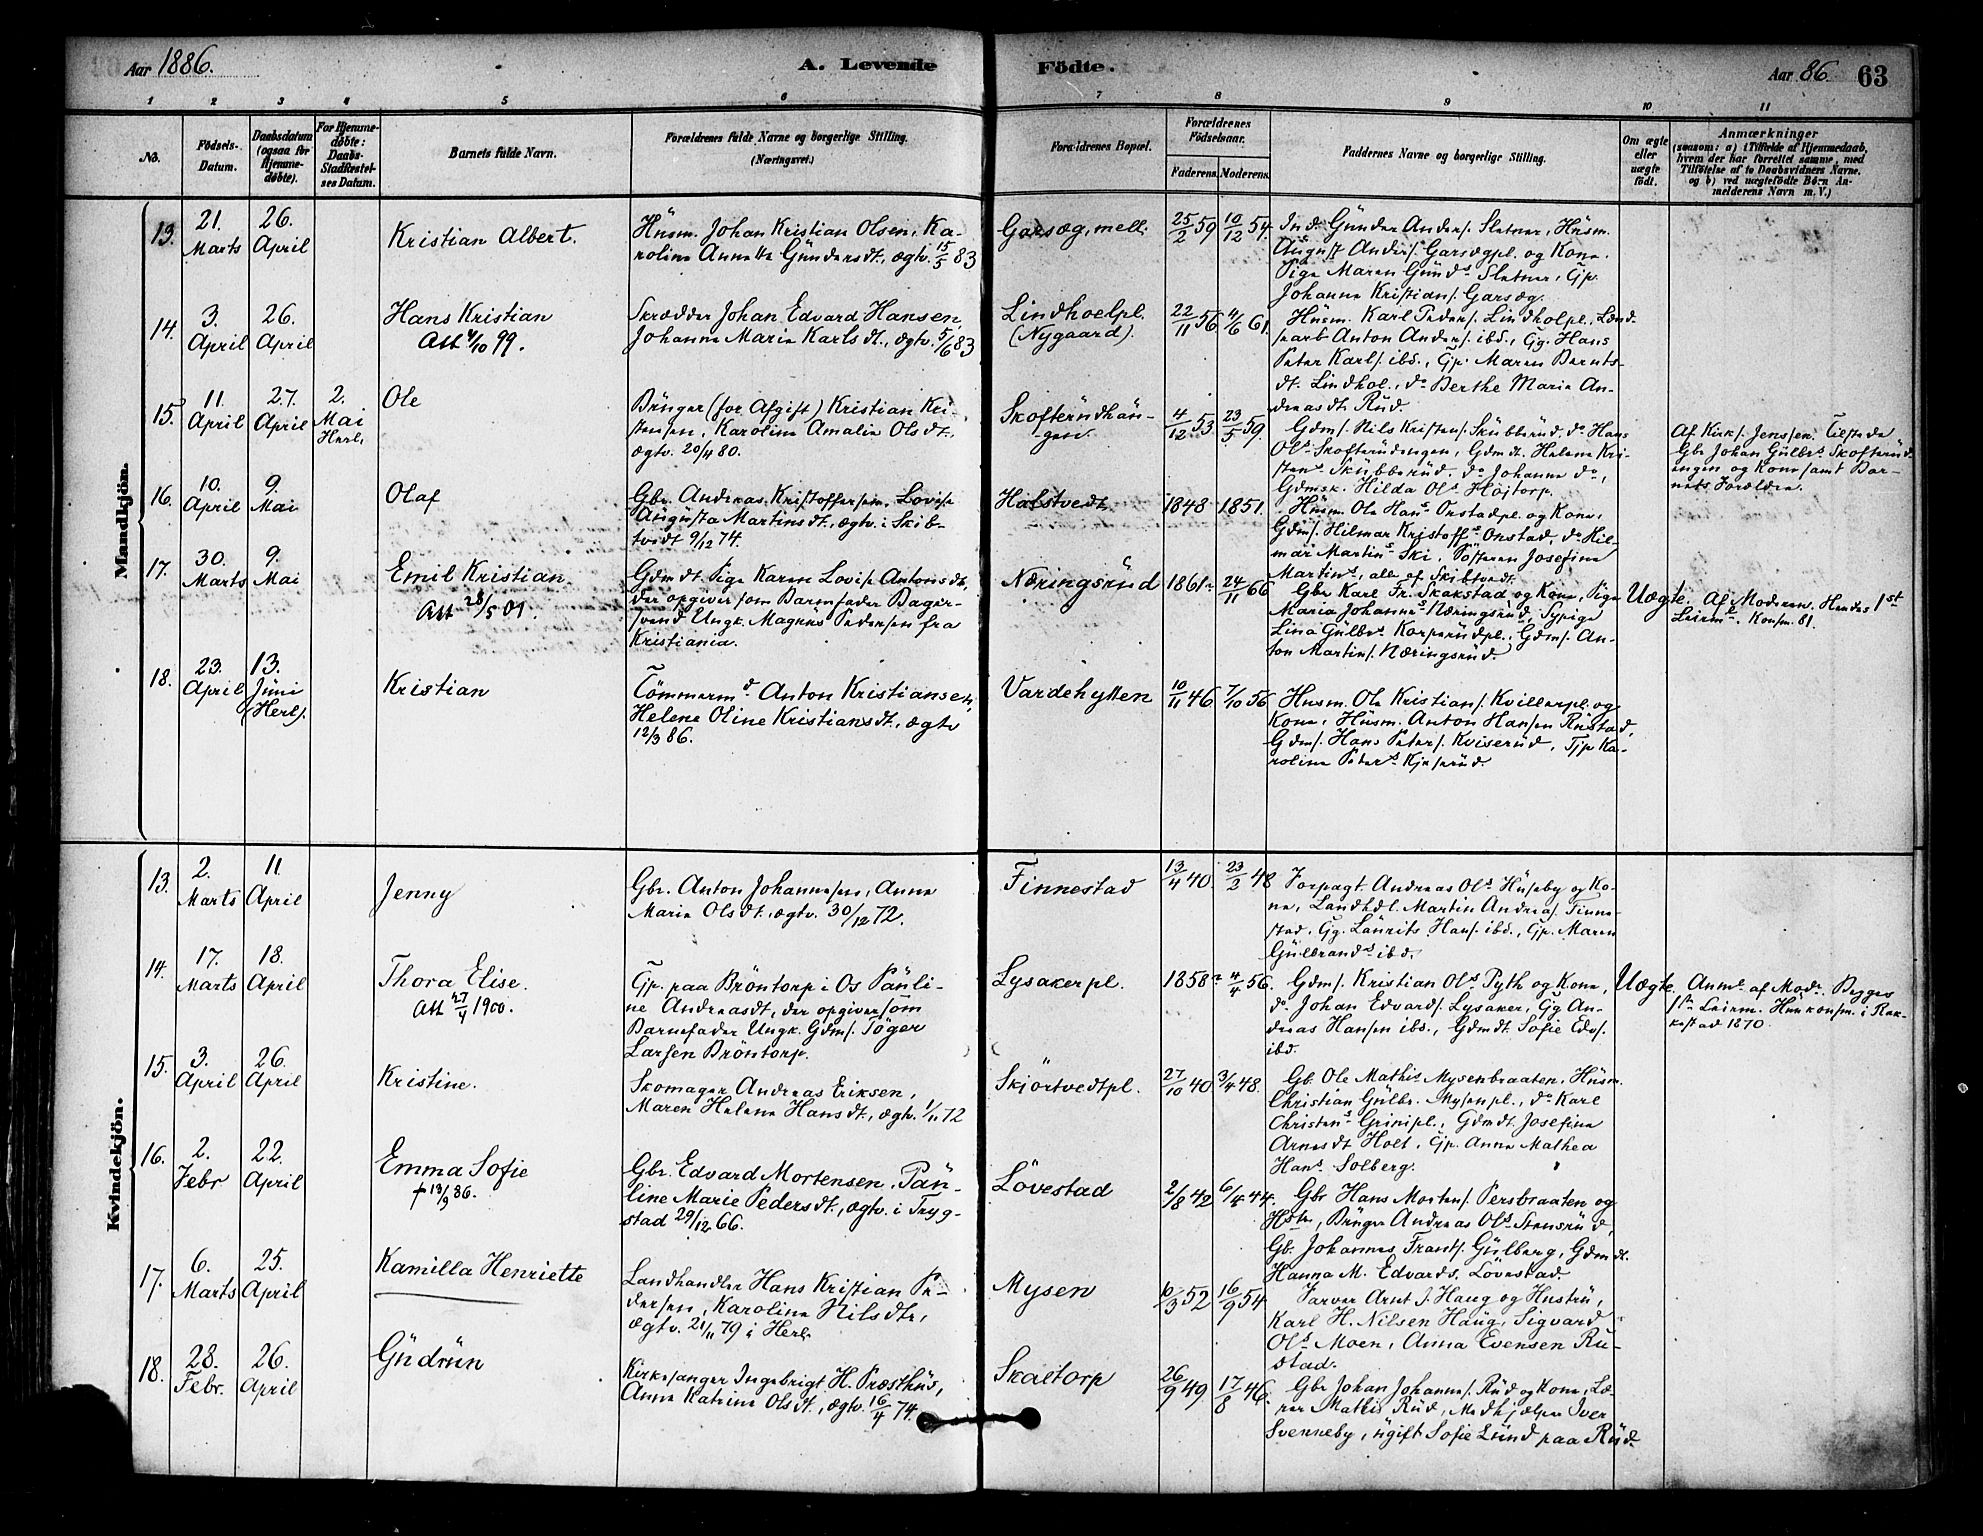 Aar 1886. A. Levende Födte. Aar 86. 63
1 2 3 4 5 6 7 8 9 10 11
No.
Födsels-
Datum.
Daabsdatum
(ogsaa for
Hjemme-
döbte).
For Hjemme-
döbte:
Daabs-
Stadfæstel-
ses Datum.
Barnets fulde Navn.
Forældrenes fulde Navne og borgerlige Stilling.
(Næringsvei.)
Forældrenes Bopæl.
Forældrenes
Födselsaar.
Faderens. Moderens.
Faddernes Navne og borgerlige Stilling.
Om ægte
eller
uægte
födt.
Anmærkninger
(saasom: a) i Tilfælde af Hjemmedaab,
hvem der har forrettet samme, med
Tilföielse af to Daabsvidners Navne.
og b) ved uægtefödte Börn An-
melderens Navn m. V.)
Mandkjön.
13. 21. Marts 26. April
Kristian Albert.
Hüsm. Johan Kristian Olsen, Ka-
roline Annette Gündersdt., ægtv. 15/5 83
Garsæg, mell.
25/2 59 10/12 54.
Ind. Günder Anders. Sletner, Hüsm.
Aügüst Anders. Garsægpl. og Kone.
Pige Maren Günds Sletner, Gp.
Johanne Kristians. Garsæg.
14. 3. April 26. April
Hans Kristian
Att 4/10 99.
Skrædder Johan Edvard Hansen,
Johanne Marie Karlsdt., ægtv. 5/6 83
Lindhoelpl.
(Nygaard).
22/11 56 4/6 61.
Hüsm. Karl Peders. Lindholpl., Land-
searb Anton Anders. ibd., Gg. Hans
Peter Karls. ibd., Gp. Maren Bernts-
dt. Lindhol., do Berthe Marie An-
dreasdt. Rüd.
15. 11. April 27. April 2. Mai Herl.
Ole
Brüger (for Afgift) Kristian Kri-
stensen, Karoline Amalie Olsdt.,
ægtv. 20/4 80.
Skofterüdhan-
gen
4/12 53 23/5 59.
Gdms. Nils Kristens. Skübberüd, do Hans
Ols Skofterüdengen, Gdmdt. Helene Kri-
stens Skübberüd, do Johanne do,
Gdmsk. Hilda Ols Höjtorp.
Af Kirks. Jenssen. Tilstede
Gbr Johan Gülbrs. Skofterüd-
engen og Kone samt Bar-
nets Forældre.
16. 10. April 9. Mai
Olaf
Gbr. Andreas Kristoffersen, Lovise
Aügüsta Martinsdt., ægtv. i Skib-
tvedt 9/12 74.
Halstvedt
1848 1851.
Hüsm. Ole Hans Onstadpl. og Kone,
Gdms. Hilmar Kristoffs Onstad, do Hil-
mar Martins Ski, Pösteren Josefine
Martins, alle af Skibtvedt.
17. 30. Marts 9. Mai
Emil Kristian.
Att 28/5 01.
Gdmdt. Pige Karen Lovise Antonsdt.,
der opgiver som Barnefader Bager-
svend Ungk. Magnus Pedersen fra
Kristiania.
Næringsrüd
1861. 24/11 66
Gbr Karl Fr. Skakstad og Kone, Pige
Maria Johanns Næringsrüd, Sypige
Lina Gülbrs. Korperüdpl., Gdms. An-
ton Martins. Næringsrüd.
Uægte.
Af Moderen. Hendes 1st
Leierm. Konfm. 81.
18. 23. April 13. Jüni (Herl).
Kristian
Tömmermd Anton Kristiansen,
Helene Oline Kristiansdt., ægtv
12/3 86.
Vardehytten
10/11 46 7/10 56
Husm. Ole Kristians. Kvillerpl. og
Kone, Hüsm. Anton Hansen Rüstad,
Gdms. Hans Peters. Kviserüd, Tjp Ka-
roline Peters Kjeserüd.
Kvindekjön.
13. 2. Marts 11. April
Jenny
Gbr. Anton Johannesen, Anne
Marie Olsdt., ægtv. 30/12 72.
Finnestad
13/4 40. 23/2 48
Forpagt. Andreas Ols Hüseby og Ko-
ne, Landhdl. Martin Andreas. Finne-
stad. Gg. Laürits Hans. ibd., Gp. Maren
Gülbrands ibd.
14. 17. Marts 18. April
Thora Elise.
Att 27/4 1900.
Gp. paa Bröntorp i Os Paüli-
ne Andreasdt, der opgiver som
Barnefader Ungk. Gdms. Töger
Larsen Bröntorp.
Lysakerpl.
1858? 4/4 56.
Gdms. Kristian Ols Pyth og Kone,
do Johan Edvards. Lysaker, Gg An-
dreas Hansen ibd., Gdmdt. Sofie Edvs.
ibd.
Uægte.
Anmt af Modr. Begges
1ste Leierm. Hun konfm. i Rak-
kestad 1870.
15. 3. April 26. April
Kristine.
Skomager Andreas Eriksen,
Maren Helene Hansdt., ægtv. 1/11 72
Skjörtvedtpl.
27/10 40 3/4 48.
Gb. Ole Mathis Mysenbraaten, Hüsm.
Christian Gülbr. Mysenpl., do Karl
Christens Grinipl., Gdmdt. Josefine
Arnesdt Holt, Gp. Anne Mathea
Hans. Solberg.
16. 2. Febr 22. April
Emma Sofie
† 13/9 86.
Gbr. Edvard Mortensen, Paü-
line Marie Pedersdt., ægtv. i Tryg-
stad 29/12 66.
Lövestad
2/8 42 6/4 44.
Gbr Hans Mortens. Persbraaten og
Hstr, Brüger Andreas Ols Stensrüd,
Gb. Johannes Frants. Gülberg, Gdmdt.
Hanna M. Edvards. Lövestad.
17. 6. Marts 25. April
Kamilla Henriette
Landhandler Hans Kristian Pe-
dersen, Karoline Nilsdtr,
ægtv. 21/11 79 i Herl.
Mysen
10/3 52 16/9 54
Farver Arnt J. Haug og Hustrü,
Karl H. Nilsen Haüg, Sigvard
Ols Moen, Anna Evensen Rü-
stad.
18. 28. Febr. 26. April
Güdrün
Kirkesanger Ingebrigt H. Præsthüs,
Anne Katrine Olsdt., ægtv. 16/4 74.
Skaltorp
26/9 49. 17/8 46.
Gbr Johan Johannes. Rüd og Kone, Læ-
rer Mathis Rüd, Medhjælper Iver
Svenneby, ügift Sofie Lünd paa Rüd.